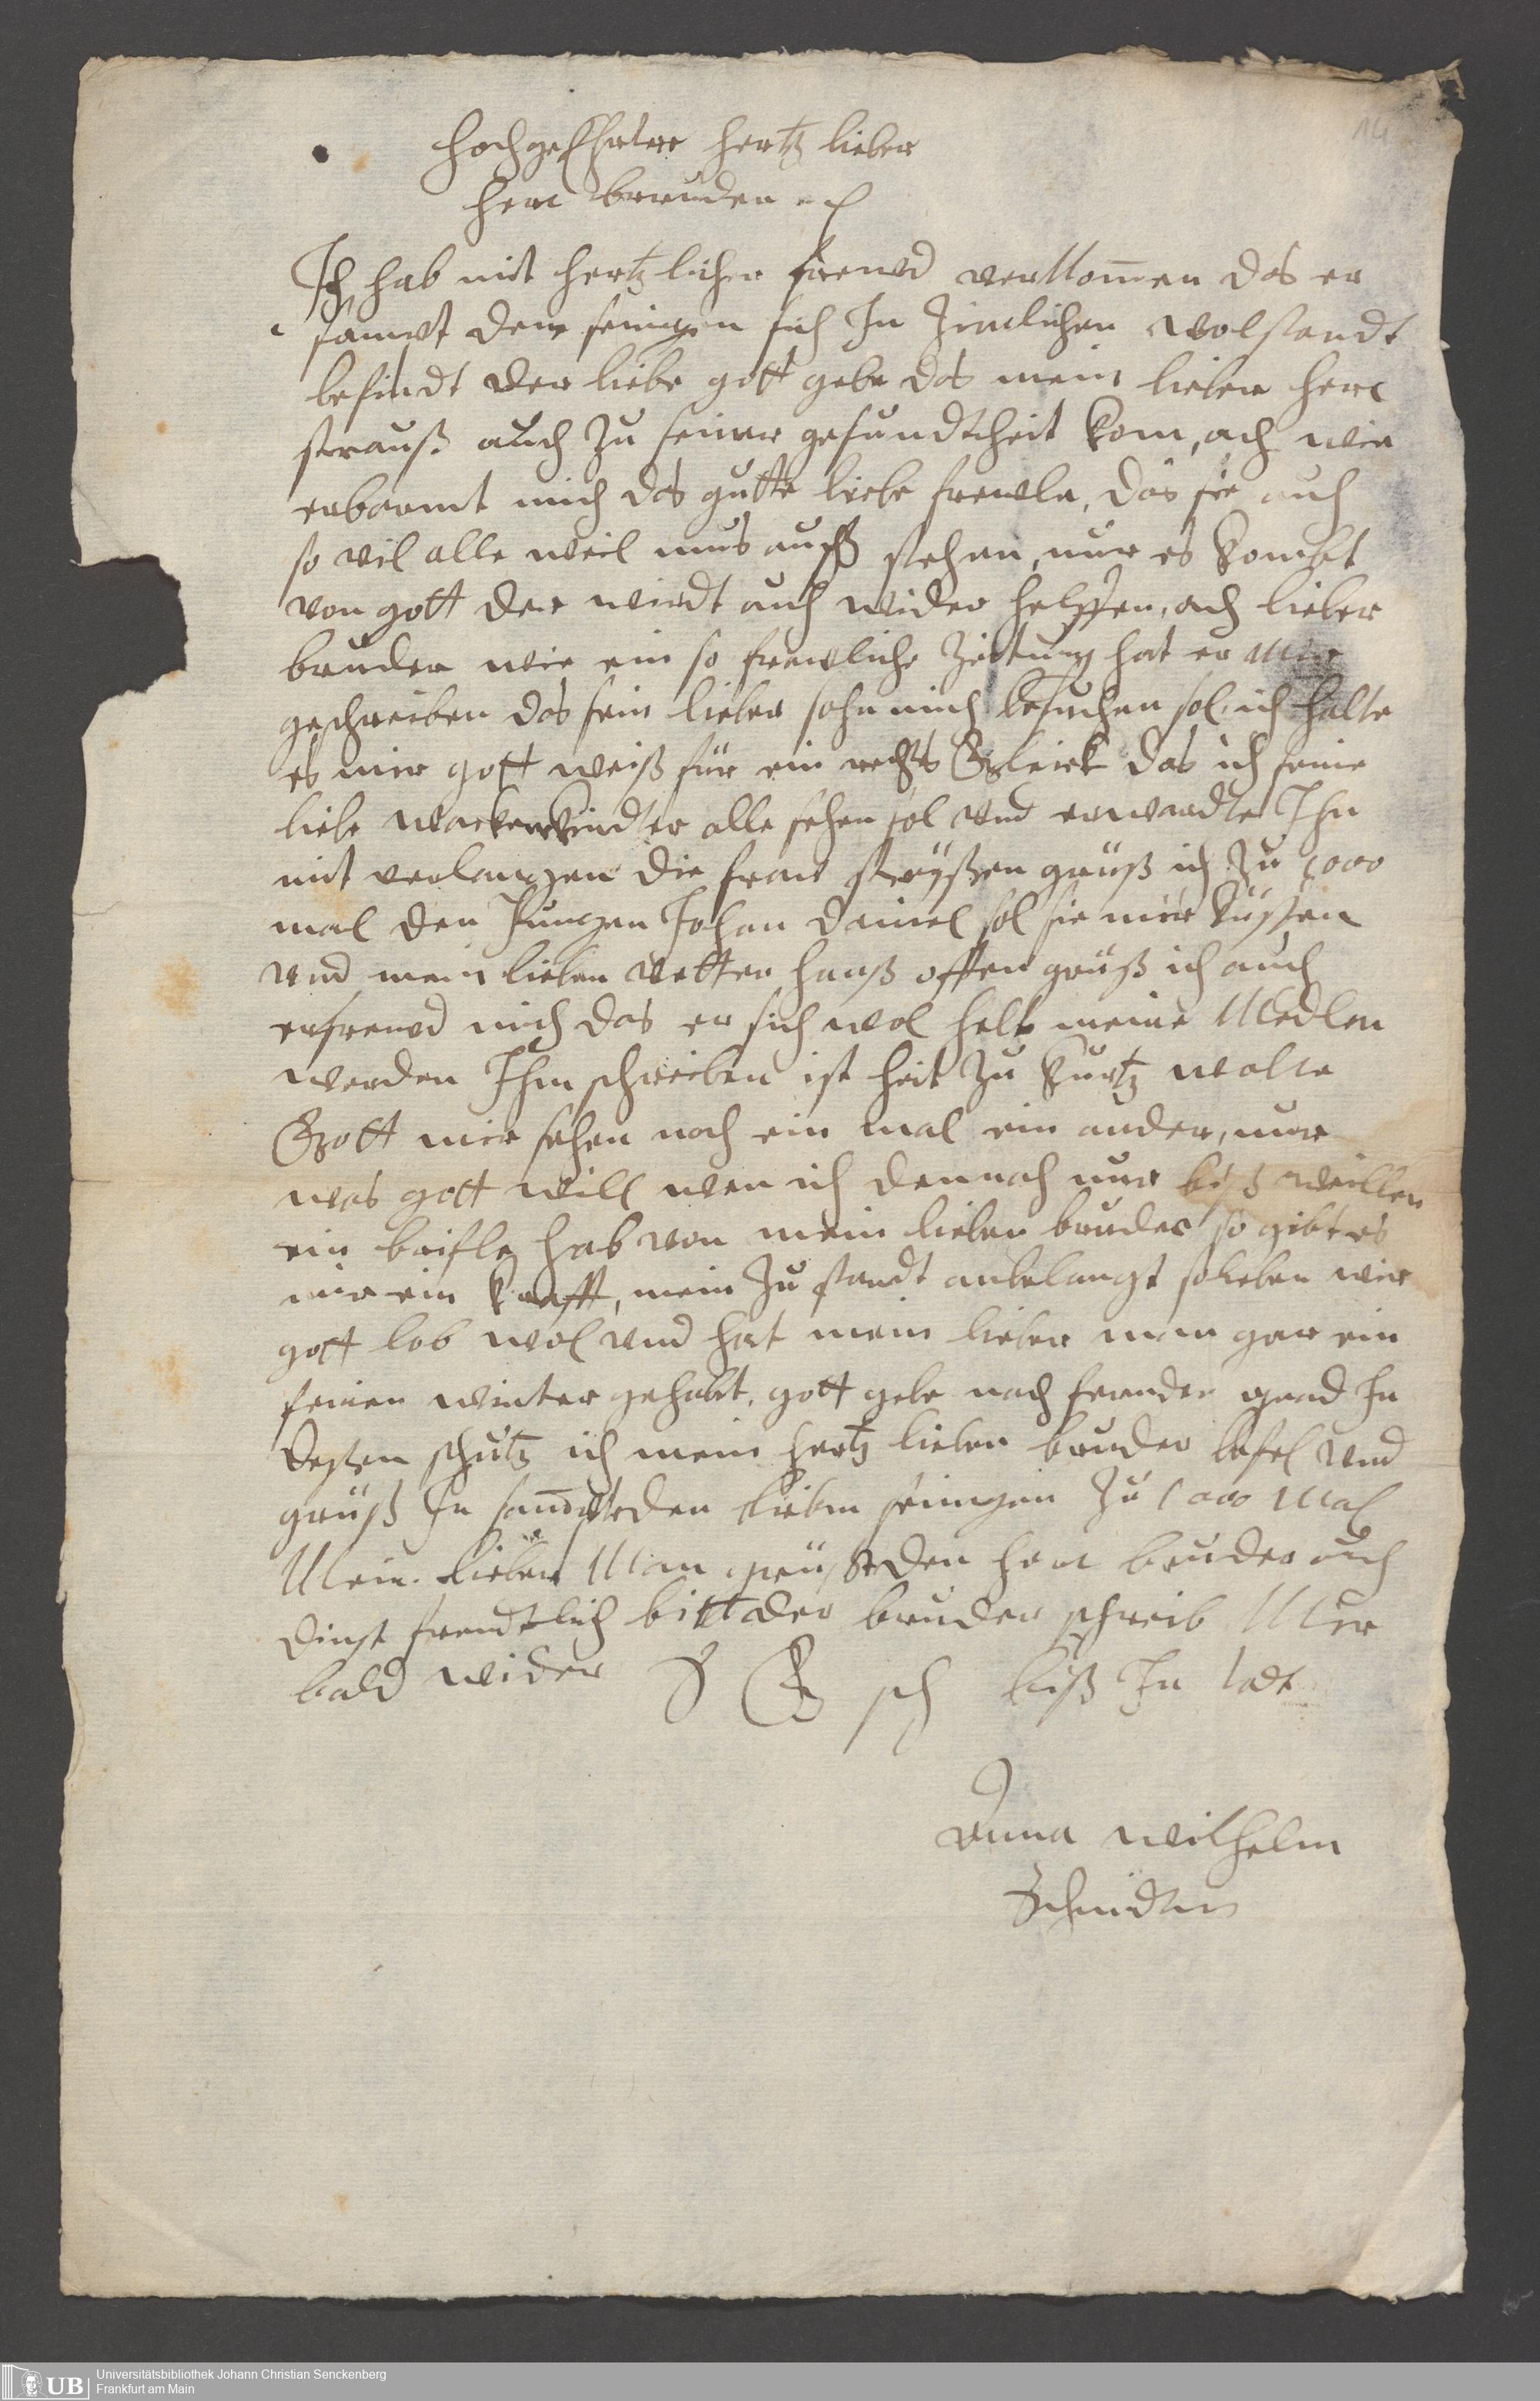 14
Hochgeehrter hertz lieber
herr bruder
Ich hab mit hertzlicher freud vernommen das er
sampt den seinigen sich In Zimlichen wolstandt
befindt der liebe gott gebe das mein lieber herr
strauß auch zu seiner gesundtheit kom, ach wie
erbarmt mich das gutte liebe frewle, das sie auch
so vil alle weil mus auß stehen, nur es kombt
von gott der wirdt auch wider helffen, ach lieber
bruder wie ein so frewliche Zeitung hat er Mir
geschreiben das sein lieber sohn mich besuchen sol, ich halte
es mir gott weiß für ein rechts Glück das ich seine
liebe wackere kindter alle sehen sol vnd erwardte Ihn
mit verlangen die frau straußen grüß ich zu 1000
mal den Jungen Johan Daniel sol sie mir küssen
vnd mein lieben vetter hanß offen grüß ich auch
erfrewd mich das er sich wol helt meine Medlen
werden Ihm schreiben ist heit zu kurtz wolte
Gott mir sehen noch ein mal ein ander, nur
was gott will wen ich dennoch nur biß weillen
ein briefle hab von mein lieben bruder so gibt es
mir ein krafft, mein zu standt anbelangt so leben wir
gott lob wol vnd hat mein lieber man gar ein
feinen winter gehabt, gott gebe noch ferender gnad In
dessen schutz ich mein hertz lieben bruder befel vnd
grüß In sampt den lieben seinigen zu 1000 Mal
Mein lieber Man grüst den herr bruder auch
dinst freundtlich bitt der bruder schreib Mir
bald wider D E sch biß In todt
Anna wilhelm
Schmidtin
Universitätsbibliothek Johann Christian Senckenberg
Frankfurt am Main
UB